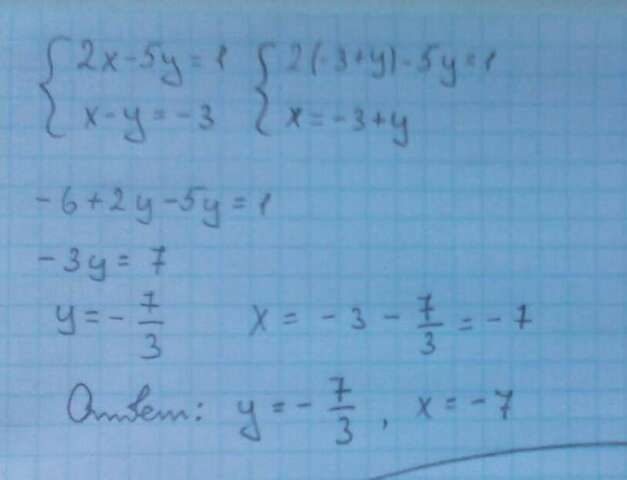 { 2x-5y=1 { 2(-3+y)-5y=1
x-y=-3 x=-3+y
-6+2y-5y=1
-3y=7
y=-7/3 x=-3-7/3=-7
Ответ: y=-7/3, x=-7